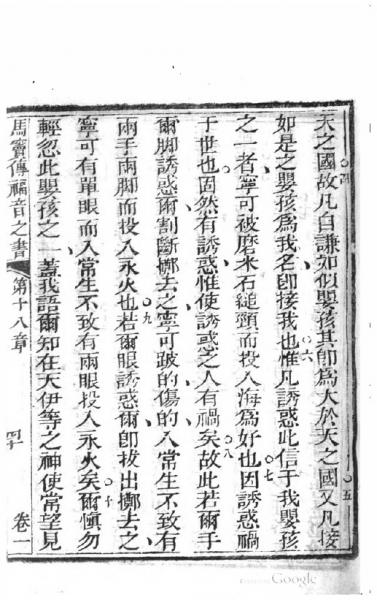 天之國故凡自謙如似嬰孩其即爲大於天之國又凡接
如是之嬰孩爲我名即接我也惟凡誘惑此信于我嬰孩
之一者寧可被磨米石縋頸而投入海爲好也因誘惑禍
于世也固然有誘惑惟使誘惑之人有禍矣故此若爾手
爾脚誘惑爾割斷擲去之寧可跛的傷的入常生不致有
兩手兩脚而投入永火也若爾眼誘惑爾即拔出擲去之
寧可有單眼而入常生不致有兩眼投入永火矣爾慎勿
輕忽此嬰孩之一蓋我語爾知在天伊等之神使常望見
馬竇傳福音之書 第十八章 四十 卷一
四
五
六
七
八
九
十
Google